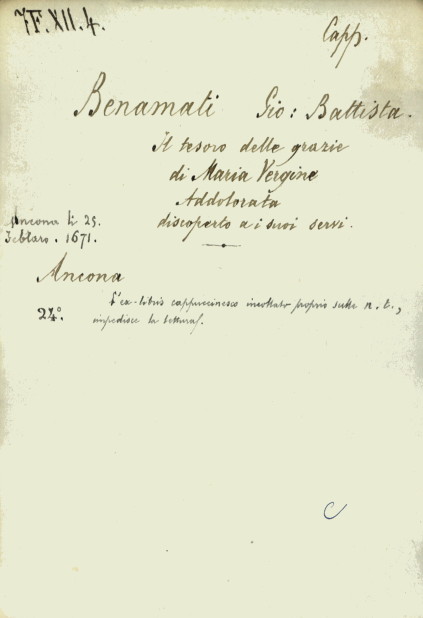 7F.XII.4.
Capp.
Benamati Gio: Battista.
Il tesoro delle grazie
di Maria Vergine
Addolorata
discoperto a i suoi servi.
Ancona li 25.
Febbraro. 1671.
Ancona
24°.
L'ex-libris cappuccinesco incollato proprio sulle n. t.,
impedisce la lettura.
C